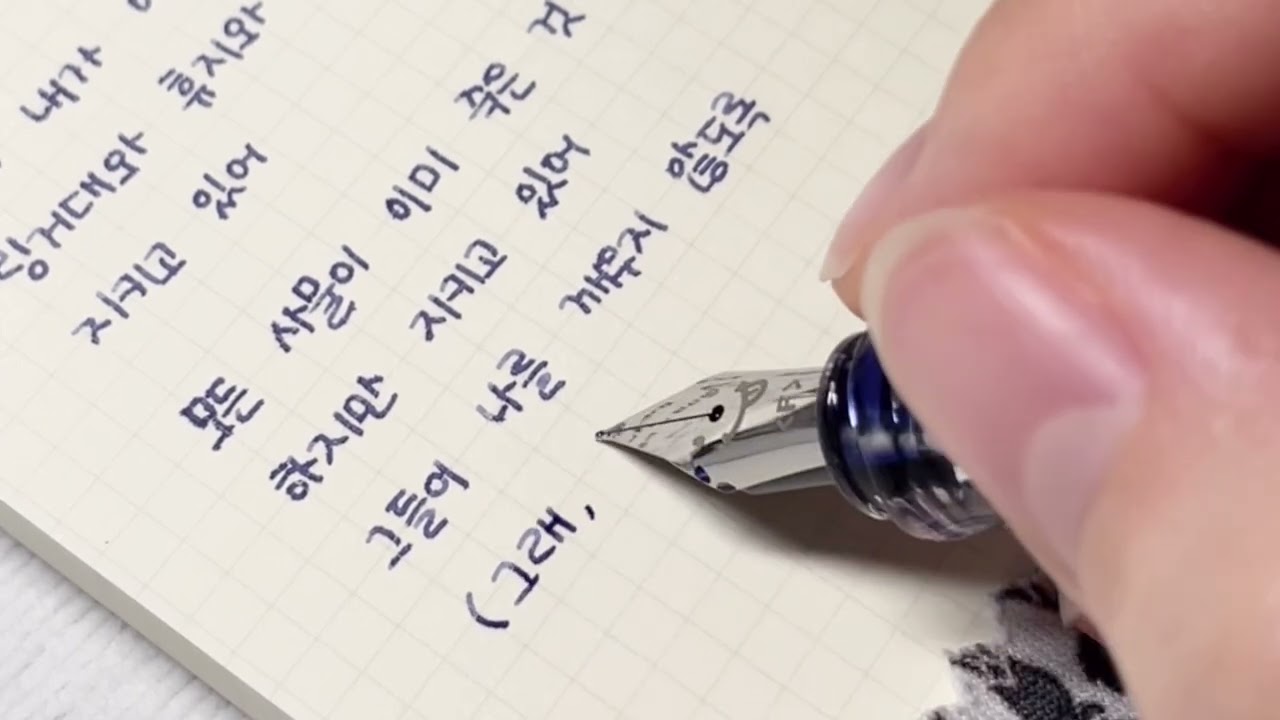 내가
링거대와 휴지와
지키고 있어
모든 사물이 이미 죽은 것
하지만 지키고 있어
그들이 나를 깨우지 않도록
(그래,
<F>